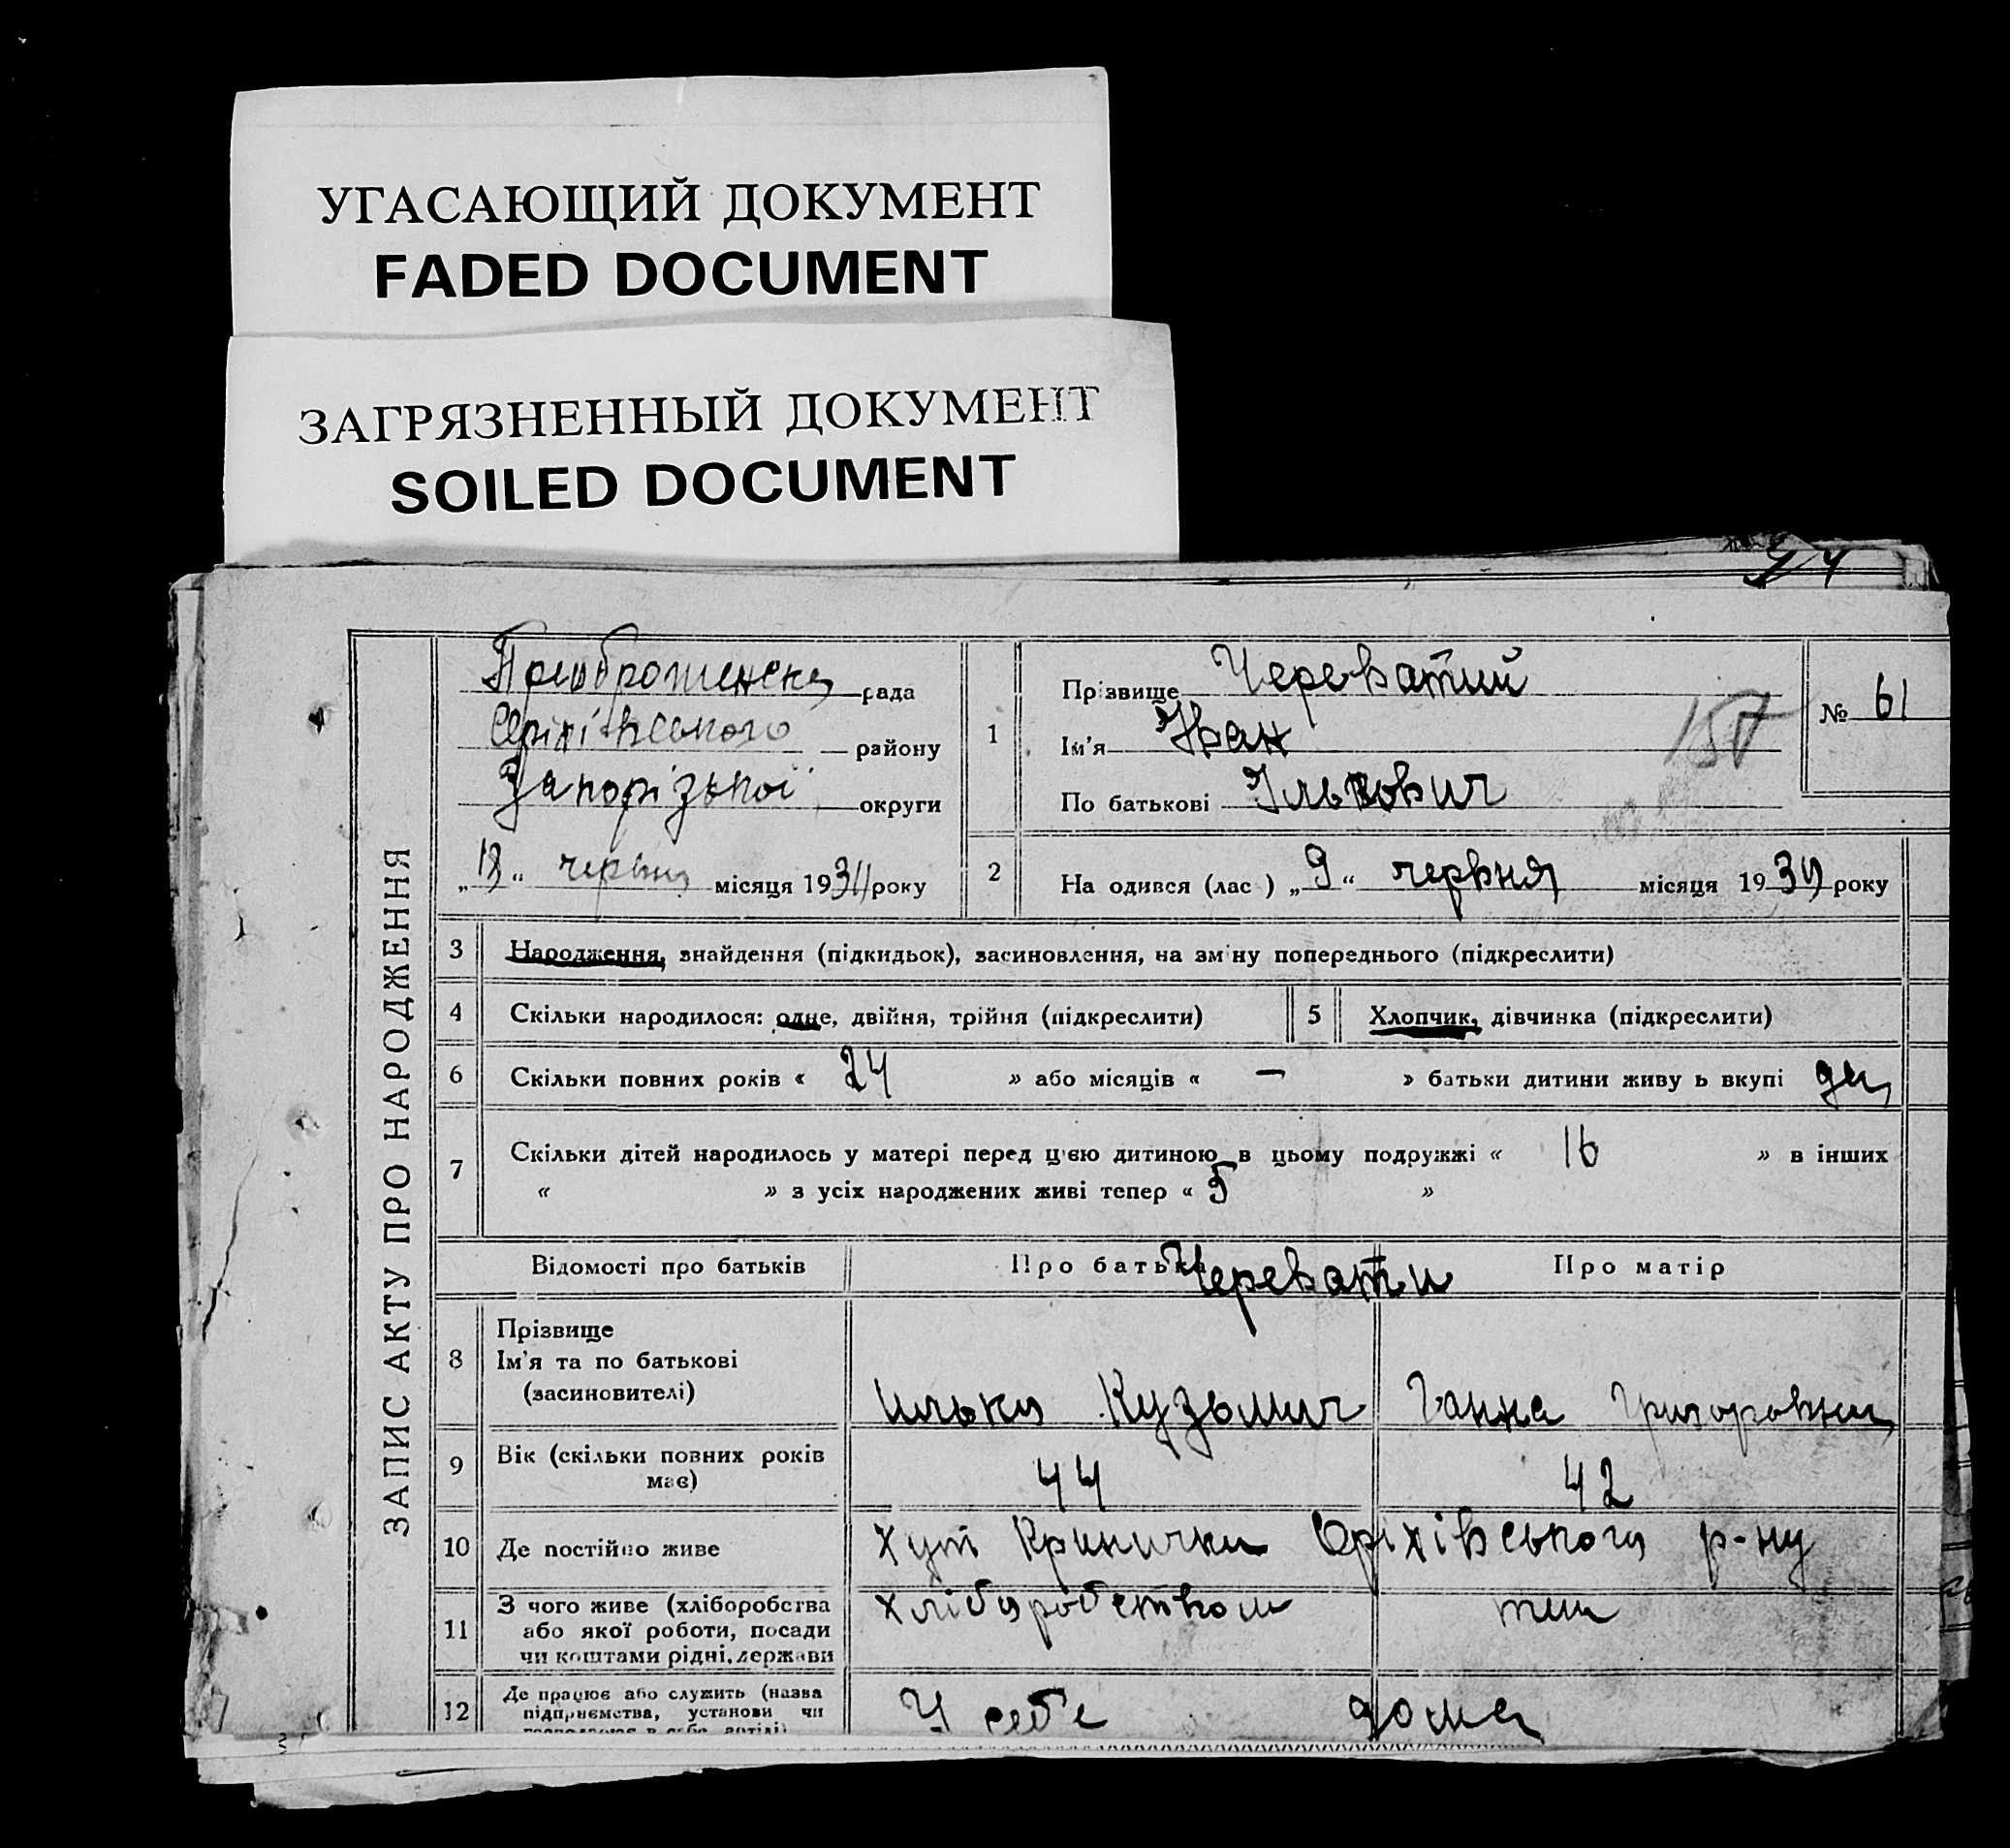 УГАСАЮЩИЙ ДОКУМЕНТ
FADED DOCUMENT
ЗАГРЯЗНЕННЫЙ ДОКУМЕНТ
SOILED DOCUMENT
ЗАПИС АКТУ ПРО НАРОДЖЕННЯ
рада
Оріхівського району
Запорізької округи
„ “ червня місяця 19 року
1
Прізвище Череватий
Ім'я Іван
По батькові Ількович
№ 61
2
На одився (лас ) „9“ червня місяця 19 року
3 Народження, знайдення (підкидьок), засиновлення, на зміну попереднього (підкреслити)
4 Скільки народилося: одне, двійня, трійня (підкреслити)
5 Хлопчик, дівчинка (підкреслити)
6 Скільки повних років « 24 » або місяців « — » батьки дитини живу ь вкупі да
7 Скільки дітей народилось у матері перед цією дитиною в цьому подружжі « 16 » в інших
« » з усіх народжених живі тепер « 5 »
Відомості про батьків
Про батька
Черевати
Про матір
8 Прізвище
Ім'я та по батькові
(засиновителі)
Илько Кузьмич
Ганна Григоровна
9 Вік (скільки повних років
має)
44
42
10 Де постійно живе
Хут Кринички Оріхівського р-ну
11 З чого живе (хліборобства
або якої роботи, посади
чи коштами рідні, держави
хліборобством
12 Де працює або служить (назва
підприємства, установи чи
У себе дома